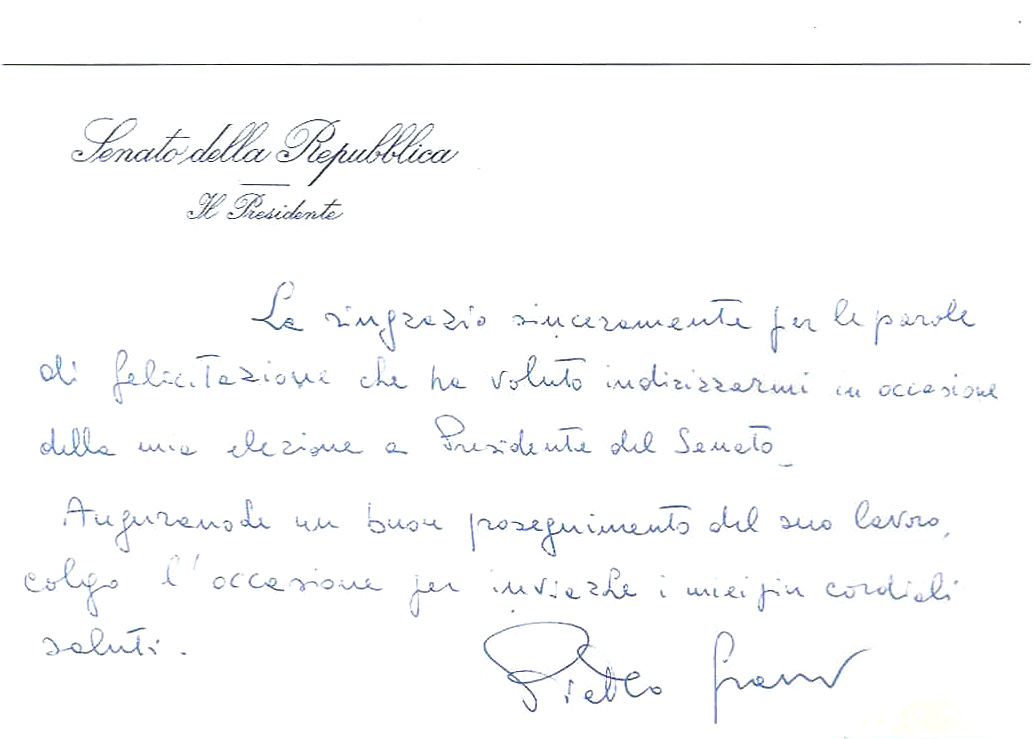 Senato della Repubblica
Il Presidente
La ringrazio sinceramente per le parole
di felicitazione che ha voluto indirizzarmi in occasione
della mia elezione a Presidente del Senato_
Augurandole un buon proseguimento del suo lavoro,
colgo l'occasione per inviarLe i miei più cordiali
saluti.
Pietro Grasso